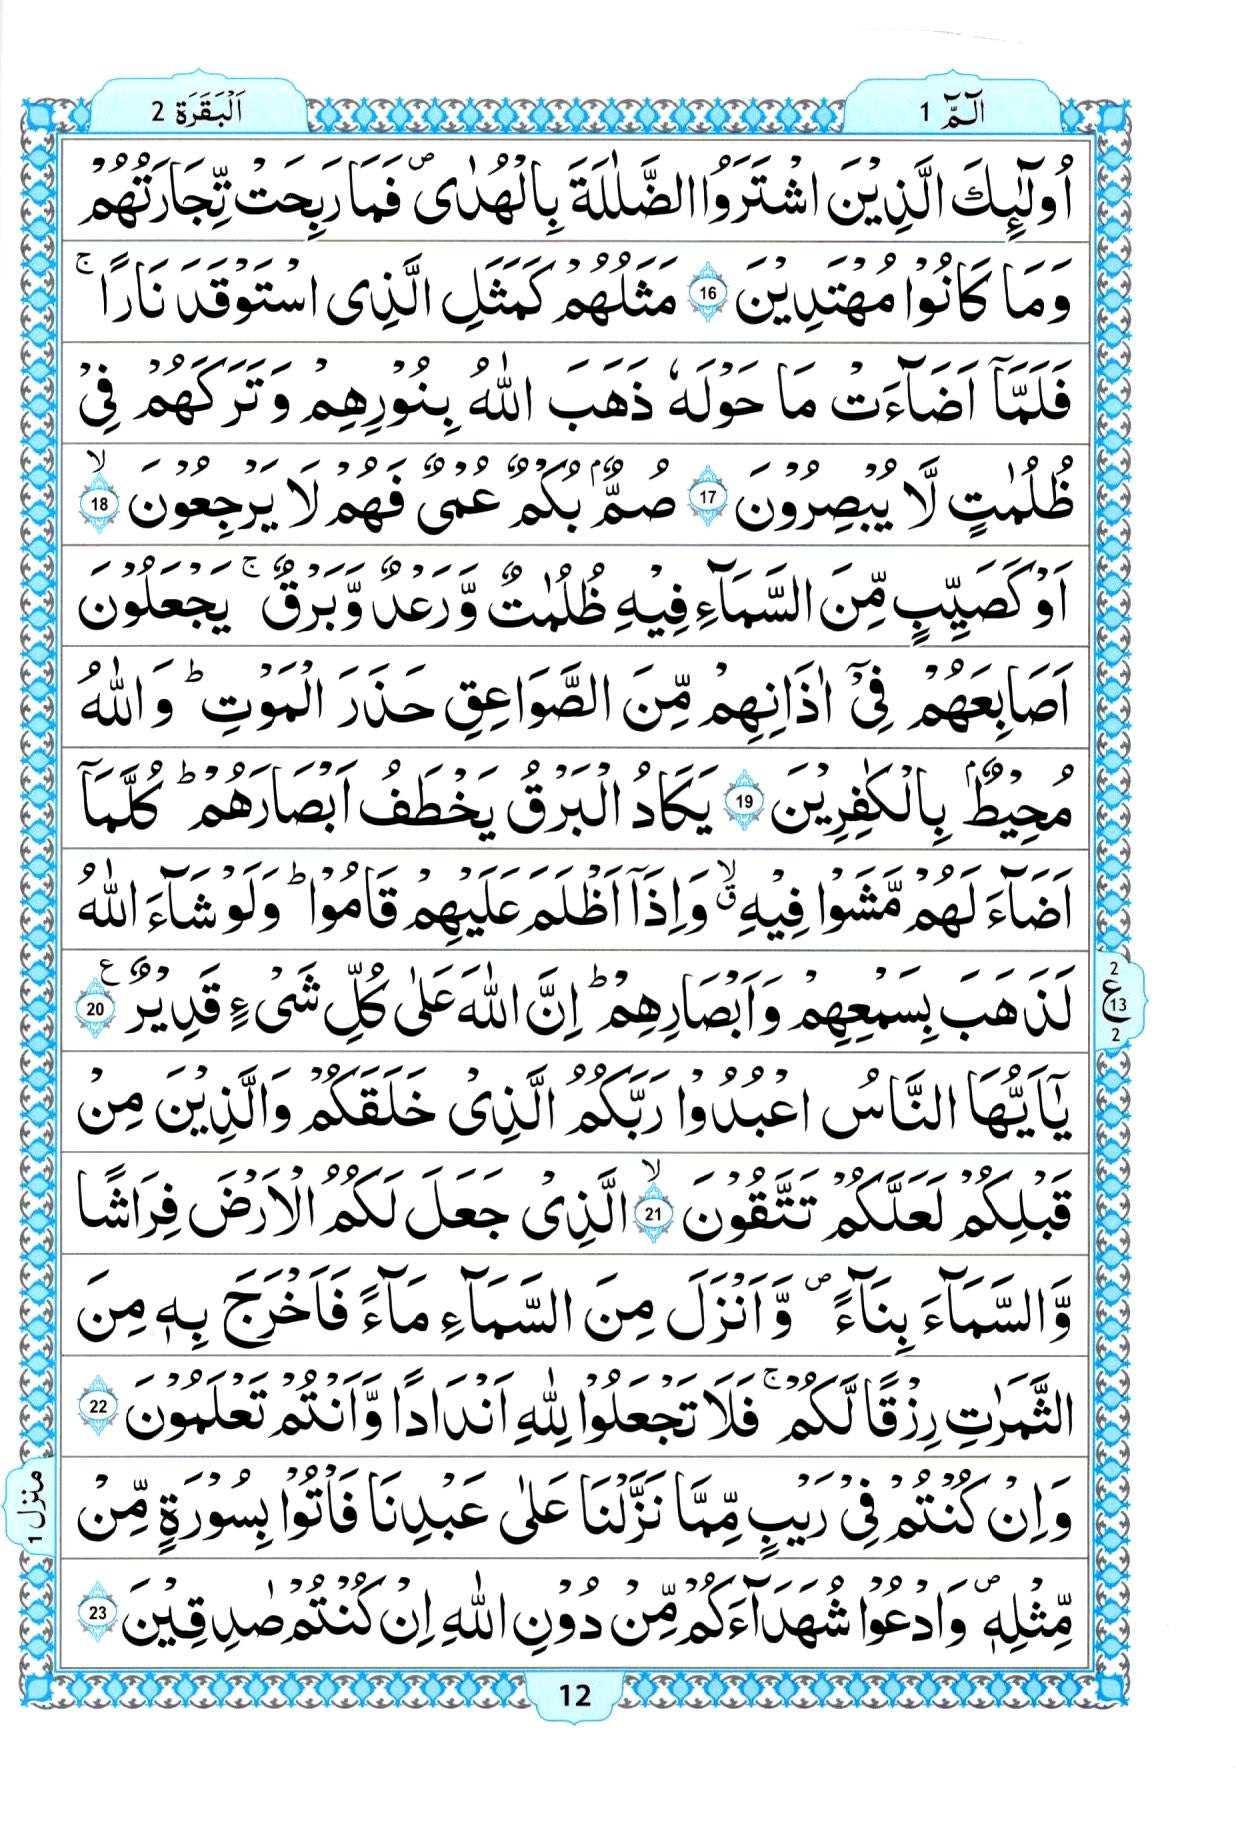 الٓمّٓ 1
اَلْبَقَرَة 2
اُولٰٓئِكَ الَّذِيْنَ اشْتَرَوُا الضَّلٰلَةَ بِالْهُدٰى ۪ فَمَا رَبِحَتْ تِّجَارَتُهُمْ
وَمَا كَانُوْا مُهْتَدِيْنَ 16 مَثَلُهُمْ كَمَثَلِ الَّذِى اسْتَوْقَدَ نَارًا ۚ
فَلَمَّآ اَضَآءَتْ مَا حَوْلَهٗ ذَهَبَ اللّٰهُ بِنُوْرِهِمْ وَتَرَكَهُمْ فِىْ
ظُلُمٰتٍ لَّا يُبْصِرُوْنَ 17 صُمٌّۢ بُكْمٌ عُمْىٌ فَهُمْ لَا يَرْجِعُوْنَ ۙ 18
اَوْ كَصَيِّبٍ مِّنَ السَّمَآءِ فِيْهِ ظُلُمٰتٌ وَّرَعْدٌ وَّبَرْقٌ ۚ يَجْعَلُوْنَ
اَصَابِعَهُمْ فِىْٓ اٰذَانِهِمْ مِّنَ الصَّوَاعِقِ حَذَرَ الْمَوْتِ ؕ وَاللّٰهُ
مُحِيْطٌۢ بِالْكٰفِرِيْنَ 19 يَكَادُ الْبَرْقُ يَخْطَفُ اَبْصَارَهُمْ ؕ كُلَّمَآ
اَضَآءَ لَهُمْ مَّشَوْا فِيْهِ ۙۗ وَاِذَآ اَظْلَمَ عَلَيْهِمْ قَامُوْا ؕ وَلَوْ شَآءَ اللّٰهُ
لَذَهَبَ بِسَمْعِهِمْ وَاَبْصَارِهِمْ ؕ اِنَّ اللّٰهَ عَلٰى كُلِّ شَىْءٍ قَدِيْرٌ ع 20
2 ع 13 2
يٰٓاَيُّهَا النَّاسُ اعْبُدُوْا رَبَّكُمُ الَّذِىْ خَلَقَكُمْ وَالَّذِيْنَ مِنْ
قَبْلِكُمْ لَعَلَّكُمْ تَتَّقُوْنَ ۙ 21 الَّذِىْ جَعَلَ لَكُمُ الْاَرْضَ فِرَاشًا
وَّالسَّمَآءَ بِنَآءً ۪ وَّاَنْزَلَ مِنَ السَّمَآءِ مَآءً فَاَخْرَجَ بِهٖ مِنَ
الثَّمَرٰتِ رِزْقًا لَّكُمْ ۚ فَلَا تَجْعَلُوْا لِلّٰهِ اَنْدَادًا وَّاَنْتُمْ تَعْلَمُوْنَ 22
وَاِنْ كُنْتُمْ فِىْ رَيْبٍ مِّمَّا نَزَّلْنَا عَلٰى عَبْدِنَا فَاْتُوْا بِسُوْرَةٍ مِّنْ
منزل 1
مِّثْلِهٖ ۪ وَادْعُوْا شُهَدَآءَكُمْ مِّنْ دُوْنِ اللّٰهِ اِنْ كُنْتُمْ صٰدِقِيْنَ 23
12